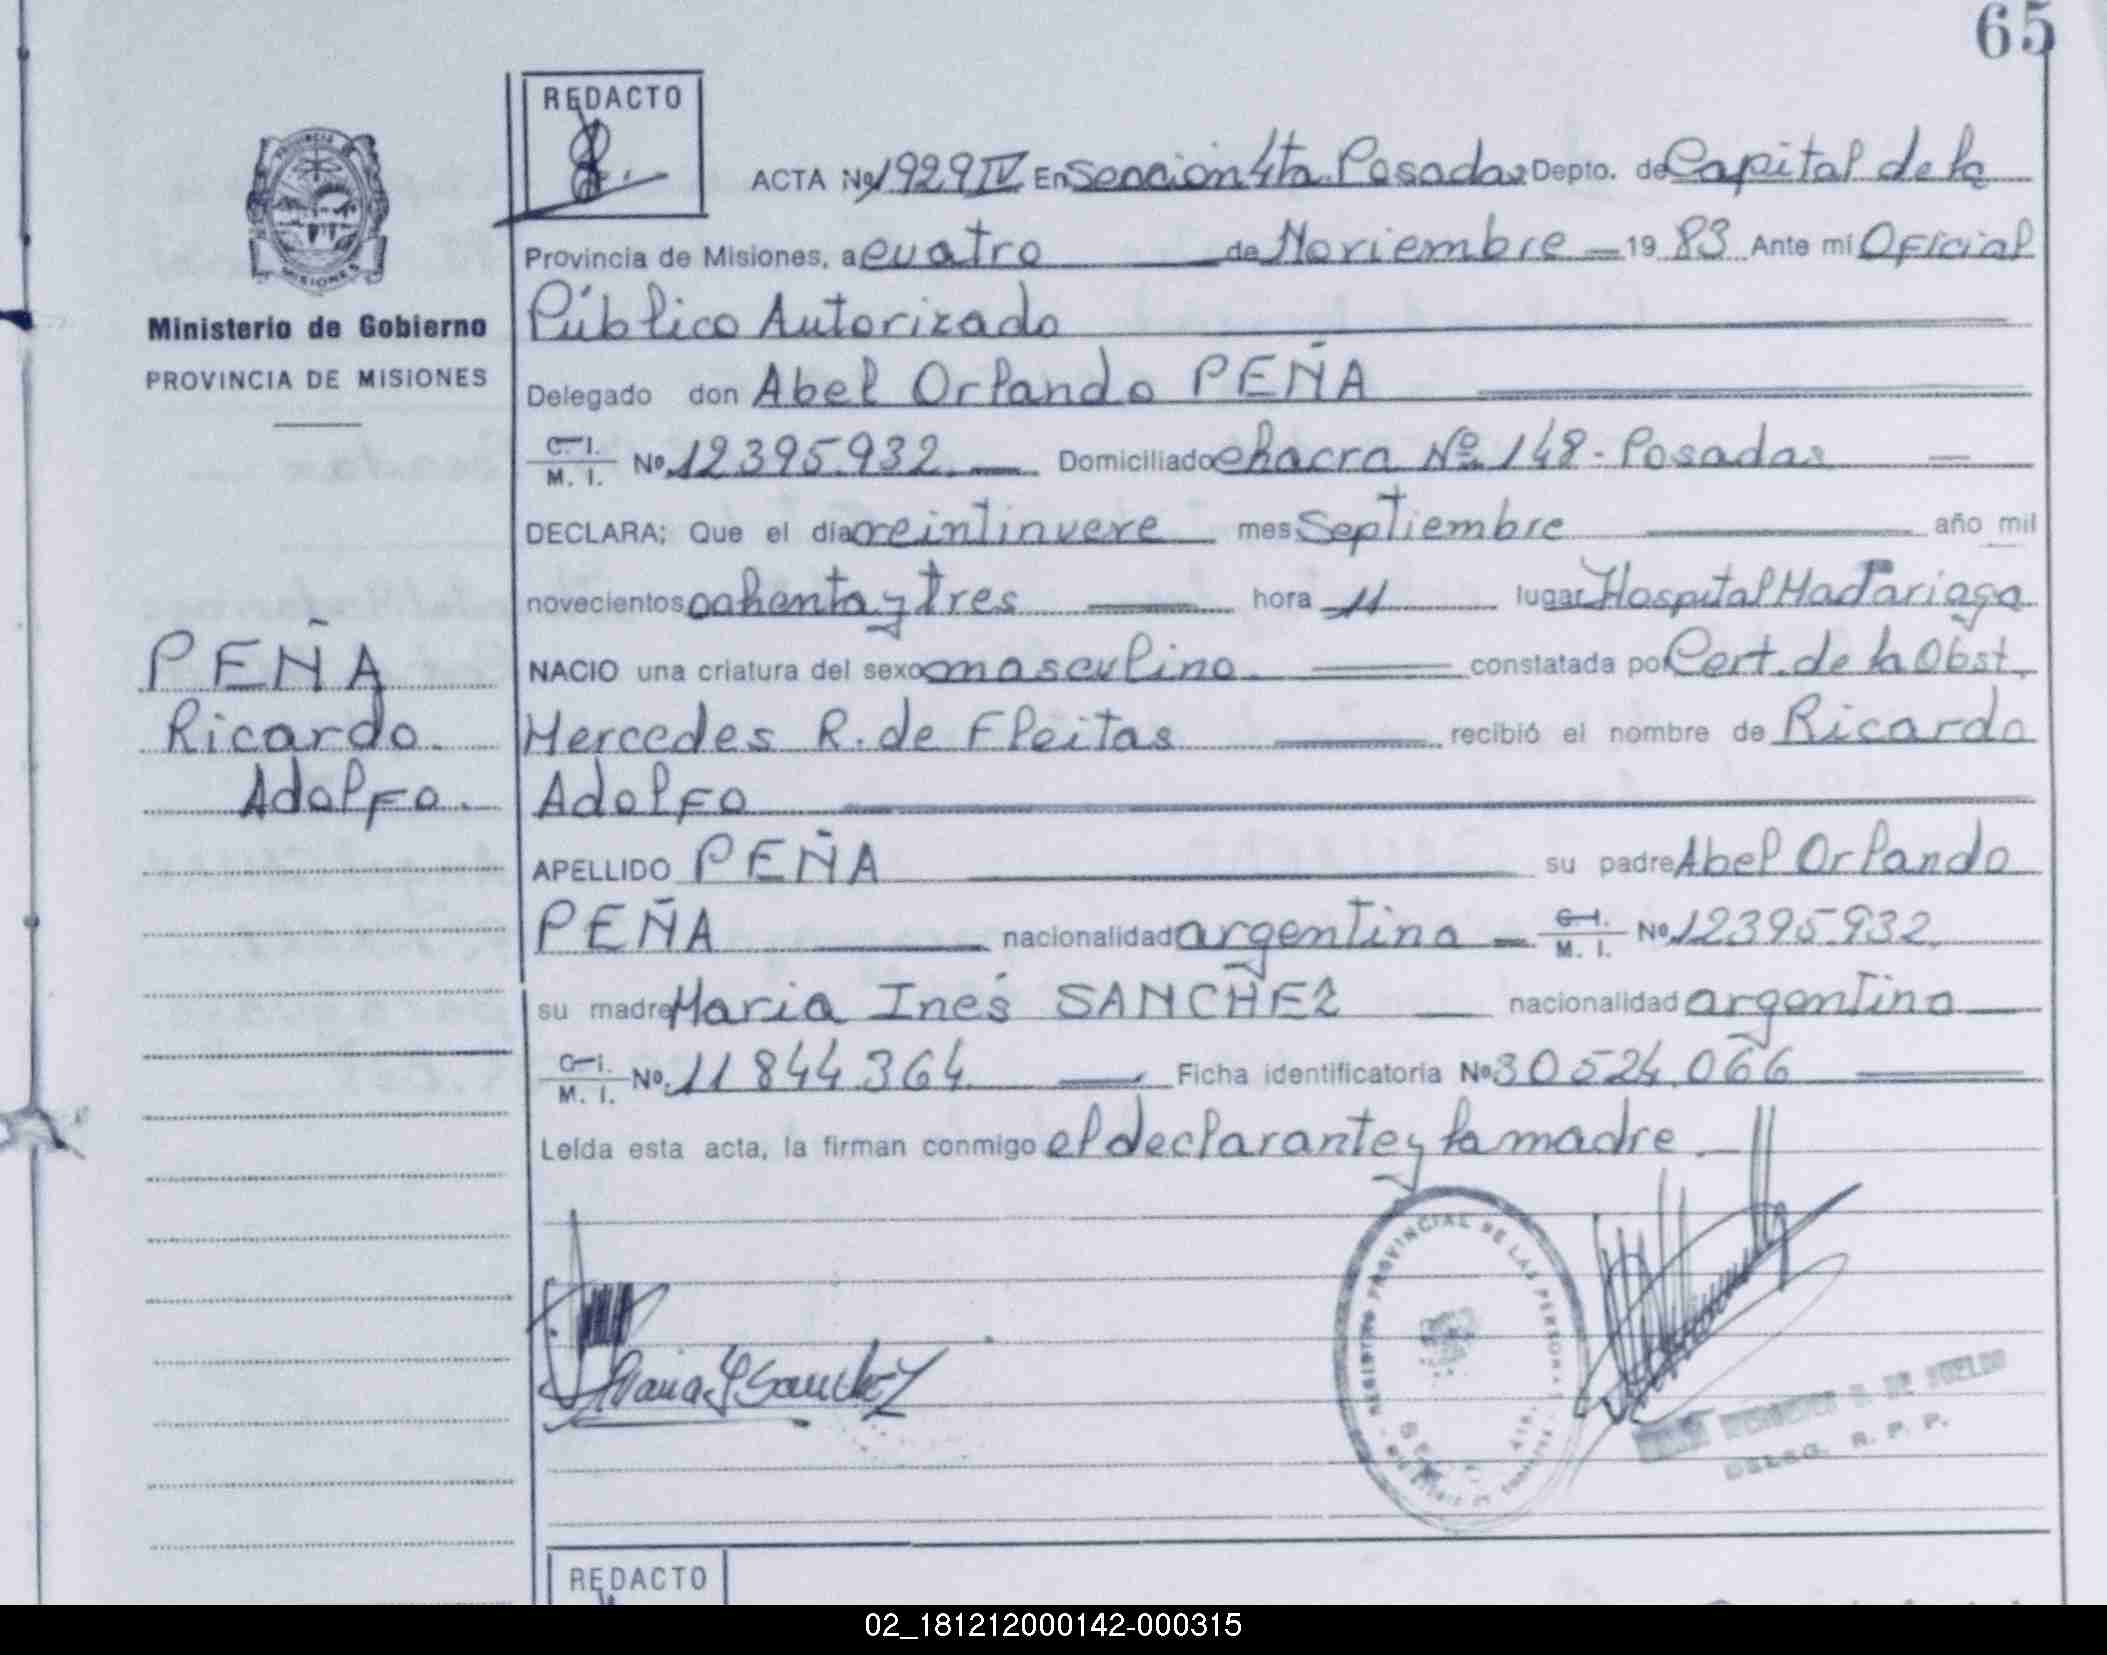 65
REDACTO
ACTA Nº 1929 IV En Sección 4ta. Posadas Depto. de Capital de la
Provincia de Misiones, a cuatro de Noviembre 19 83 Ante mí Oficial
Público Autorizado
Ministerio de Gobierno
PROVINCIA DE MISIONES
Delegado don Abel Orlando PEÑA
C. I.
M. I. Nº 12395.932 Domiciliado chacra Nº 148 - Posadas
DECLARA; Que el día veintinueve mes Septiembre año mil
novecientos ochenta y tres hora 11 lugar Hospital Madariaga
NACIO una criatura del sexo masculino. constatada por Cert. de la Obst.
Mercedes R. de Fleitas recibió el nombre de Ricardo
Adolfo
PEÑA
Ricardo.
Adolfo.
APELLIDO PEÑA su padre Abel Orlando
PEÑA nacionalidad argentina C. I.
M. I. Nº 12395.932
su madre Maria Inés SANCHEZ nacionalidad argentina
C. I.
M. I. Nº 11844.364 Ficha identificatoria Nº 30524.066
Leída esta acta, la firman conmigo el declarante y la madre
Maria I Sanchez
REGISTRO PROVINCIAL DE LAS PERSONAS
DE SUELDO
DELEG. R. P. P.
REDACTO
02_181212000142-000315